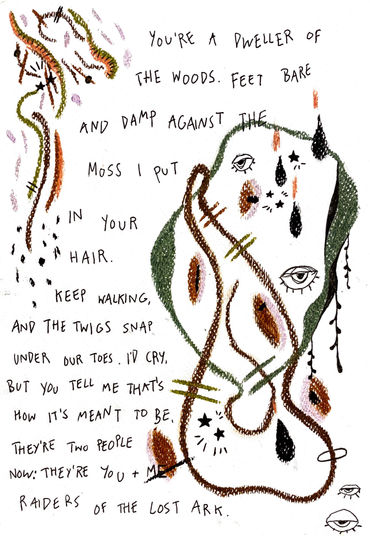 YOU'RE A DWELLER OF
THE WOODS. FEET BARE
AND DAMP AGAINST THE
MOSS I PUT
IN YOUR
HAIR.
KEEP WALKING,
AND THE TWIGS SNAP
UNDER OUR TOES. I'D CRY,
BUT YOU TELL ME THAT'S
HOW IT'S MEANT TO BE.
THEY'RE TWO PEOPLE
NOW: THEY'RE YOU + ME
RAIDERS OF THE LOST ARK.